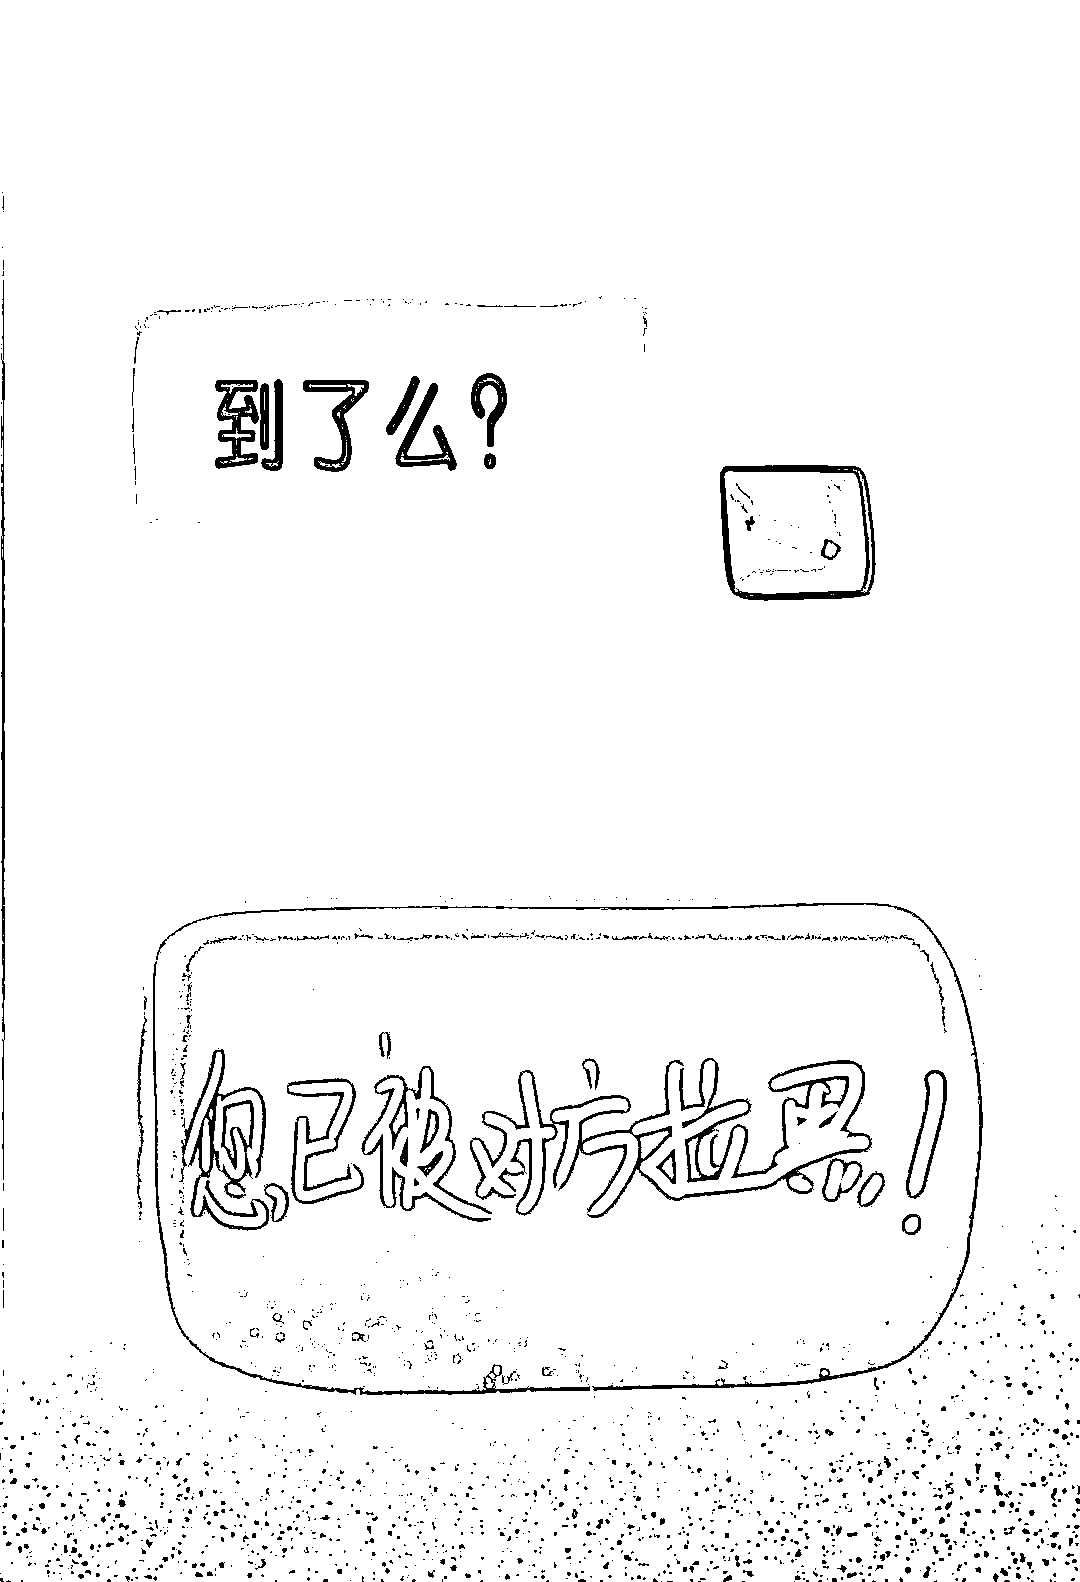 到了么?
您已被对方拉黑!